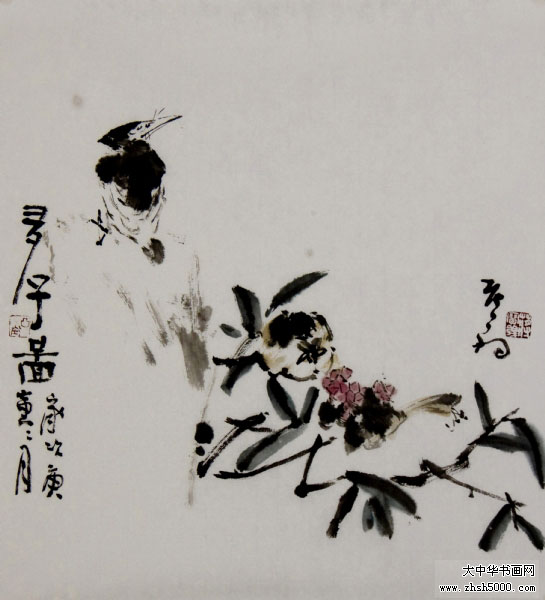 多子啚
歲次庚
寅二月
大中华书画网
www.zhsh5000.com